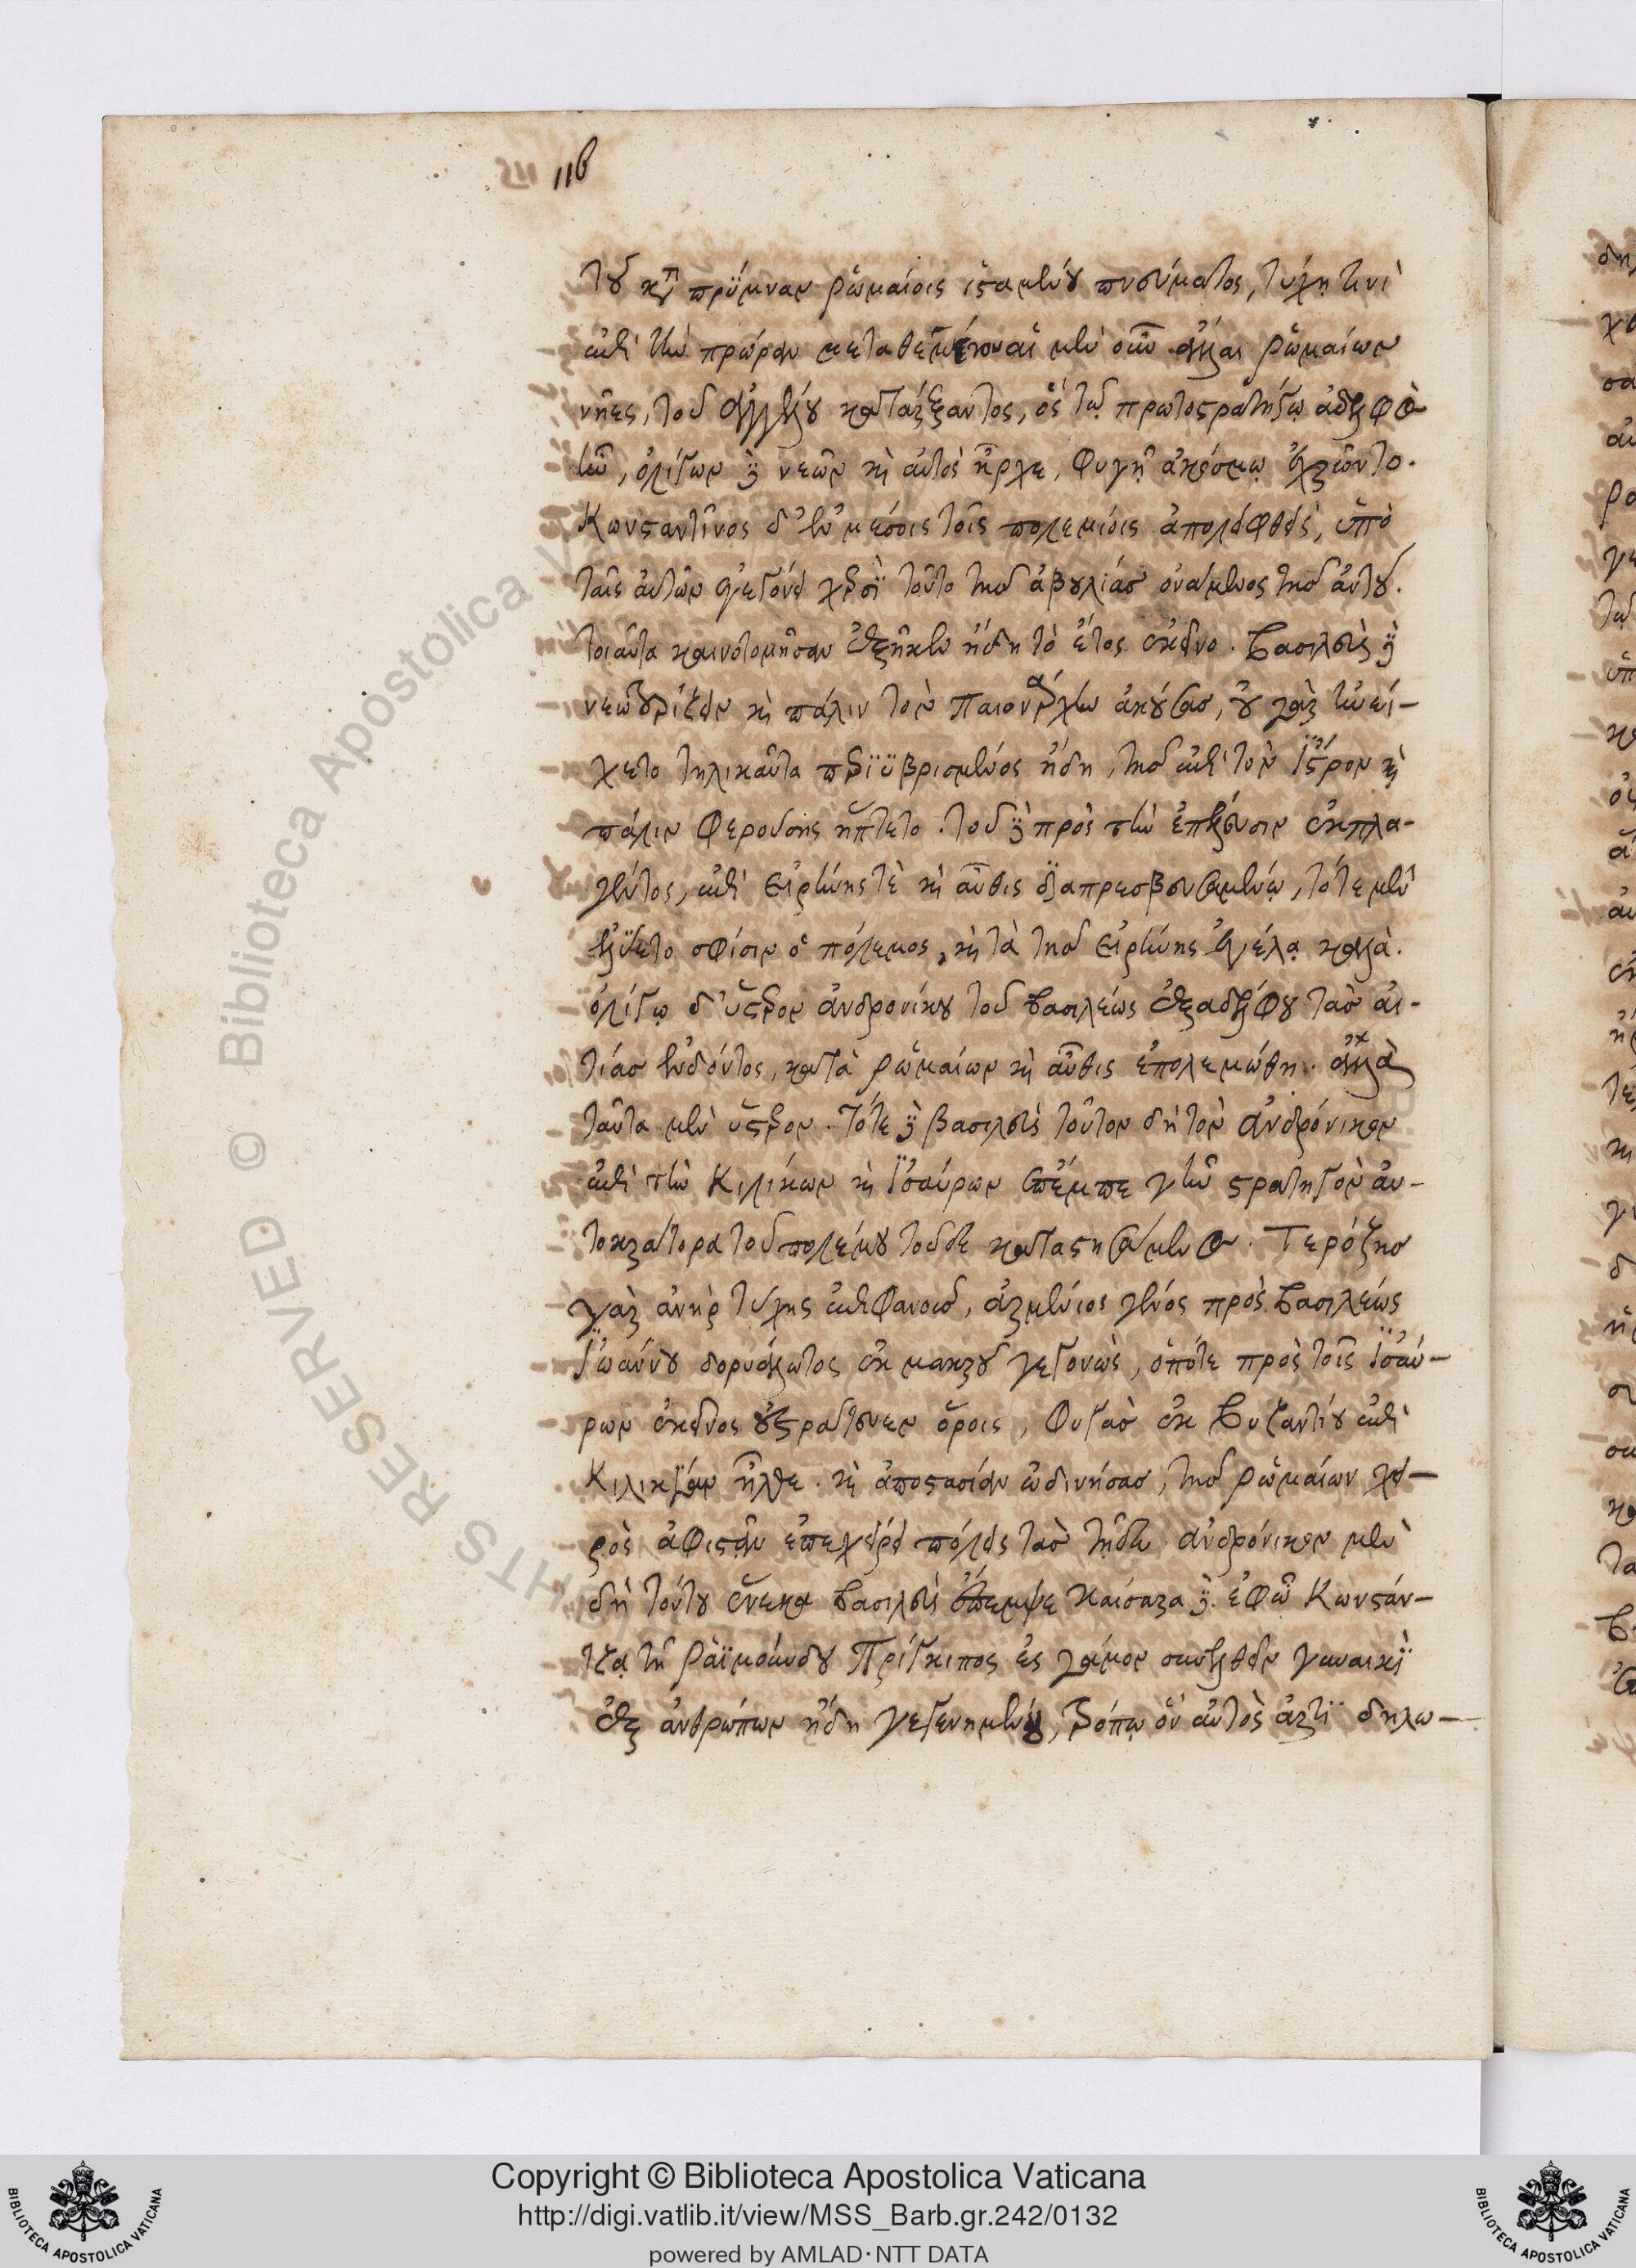 116
του κατὰ πρύμναν ῥωμαίοις ἱσταμένου πνεύματος, τύχῃ τινὶ
ἐπὶ τὴν πρώραν μεταθεμένου αἱ μὲν οὖν ἄλλαι ῥωμαίων
νῆες, τοῦ ἀγγέλου κατάρξαντος, ὃς τῷ πρωτοστράτηγῳ ἀδελφὸς
ἦν, ὀλίγων δὲ νεῶν καὶ αὐτὸς ἦρχε, φυγῇ ἀκόσμῳ ἐχρῶντο.
Κωνσταντῖνος δ' ἐν μέσοις τοῖς πολεμίοις ἀποληφθεὶς, ὑπὸ
ταῖς αὐτῶν ἐγεγόνει χερσὶ τοῦτο τῆς ἀβουλίας ὀνάμενος τῆς αὐτοῦ.
τοιαῦτα καινοτομῆσαν ἐξῆκεν ἤδη τὸ ἔτος ἐκεῖνο. βασιλεὺς δὲ
νεωτερίζειν καὶ πάλιν τὸν παιονάρχην ἀκούσας, οὐ γὰρ ἠνεί-
χετο τηλικαῦτα περιϋβρισμένος ἤδη, τῆς ἐπὶ τὸν ἴστρον καὶ
πάλιν φερούσης ἥπτετο. τοῦ δὲ πρὸς τὴν ἐπέλευσιν ἐκπλα-
γέντος, ἐπὶ εἰρήνης τὲ καὶ αὖθις διαπρεσβευσαμένῳ, τότε μὲν
ἐλύετο σφίσιν ὁ πόλεμος, καὶ τὰ τῆς εἰρήνης ἐγέλα καλά.
ὀλίγῳ δ' ὕστερον ἀνδρονίκου τοῦ βασιλέως ἐξαδέλφου τὰς αἰ-
τίας ἐνδόντος, κατὰ ῥωμαίων καὶ αὖθις ἐπολεμώθη. ἀλλὰ
ταῦτα μὲν ὕστερον. τότε δὲ βασιλεὺς τοῦτον δὴ τὸν ἀνδρόνικον
ἐπὶ τὴν Κιλίκων καὶ ἰσαύρων ἔπεμπε γῆν στρατηγὸν αὐ-
τοκράτορα τοῦ πολέμου τοῦδε καταστησάμενος. Τερόζης
γὰρ ἀνὴρ τύχης ἐπιφανοῦς, ἀρμένιος γένος πρὸς βασιλέως
ἰωάννου δορυάλωτος ἐκ μακροῦ γεγονὼς, ὁπότε πρὸς τοῖς ἰσαύ-
ρων ἐκεῖνος ἐστράτευεν ὅροις, φυγὰς ἐκ βυζαντίου ἐπὶ
Κιλικίαν ἦλθε. καὶ ἀποστασίαν ὠδινήσας, τῆς ῥωμαίων χει-
ρὸς ἀφιστᾶν ἐπεχείρει πόλεις τὰς τῇδε. ἀνδρόνικον μὲν
δὴ τούτου ἕνεκα βασιλεὺς ἔπεμψε καίσαρα δὲ ἐφ' ᾧ Κωνστάν-
τζᾳ τῇ ῥαϊμούνδου Πρίγκιπος ἐς γάμον συνελθεῖν γυναικὶ
ἐξ ἀνθρώπων ἤδη γεγενημένου, τρόπῳ ὃν αὐτὸς ἄρτι δηλω-
Copyright © Biblioteca Apostolica Vaticana
http://digi.vatlib.it/view/MSS_Barb.gr.242/0132
powered by AMLAD·NTT DATA